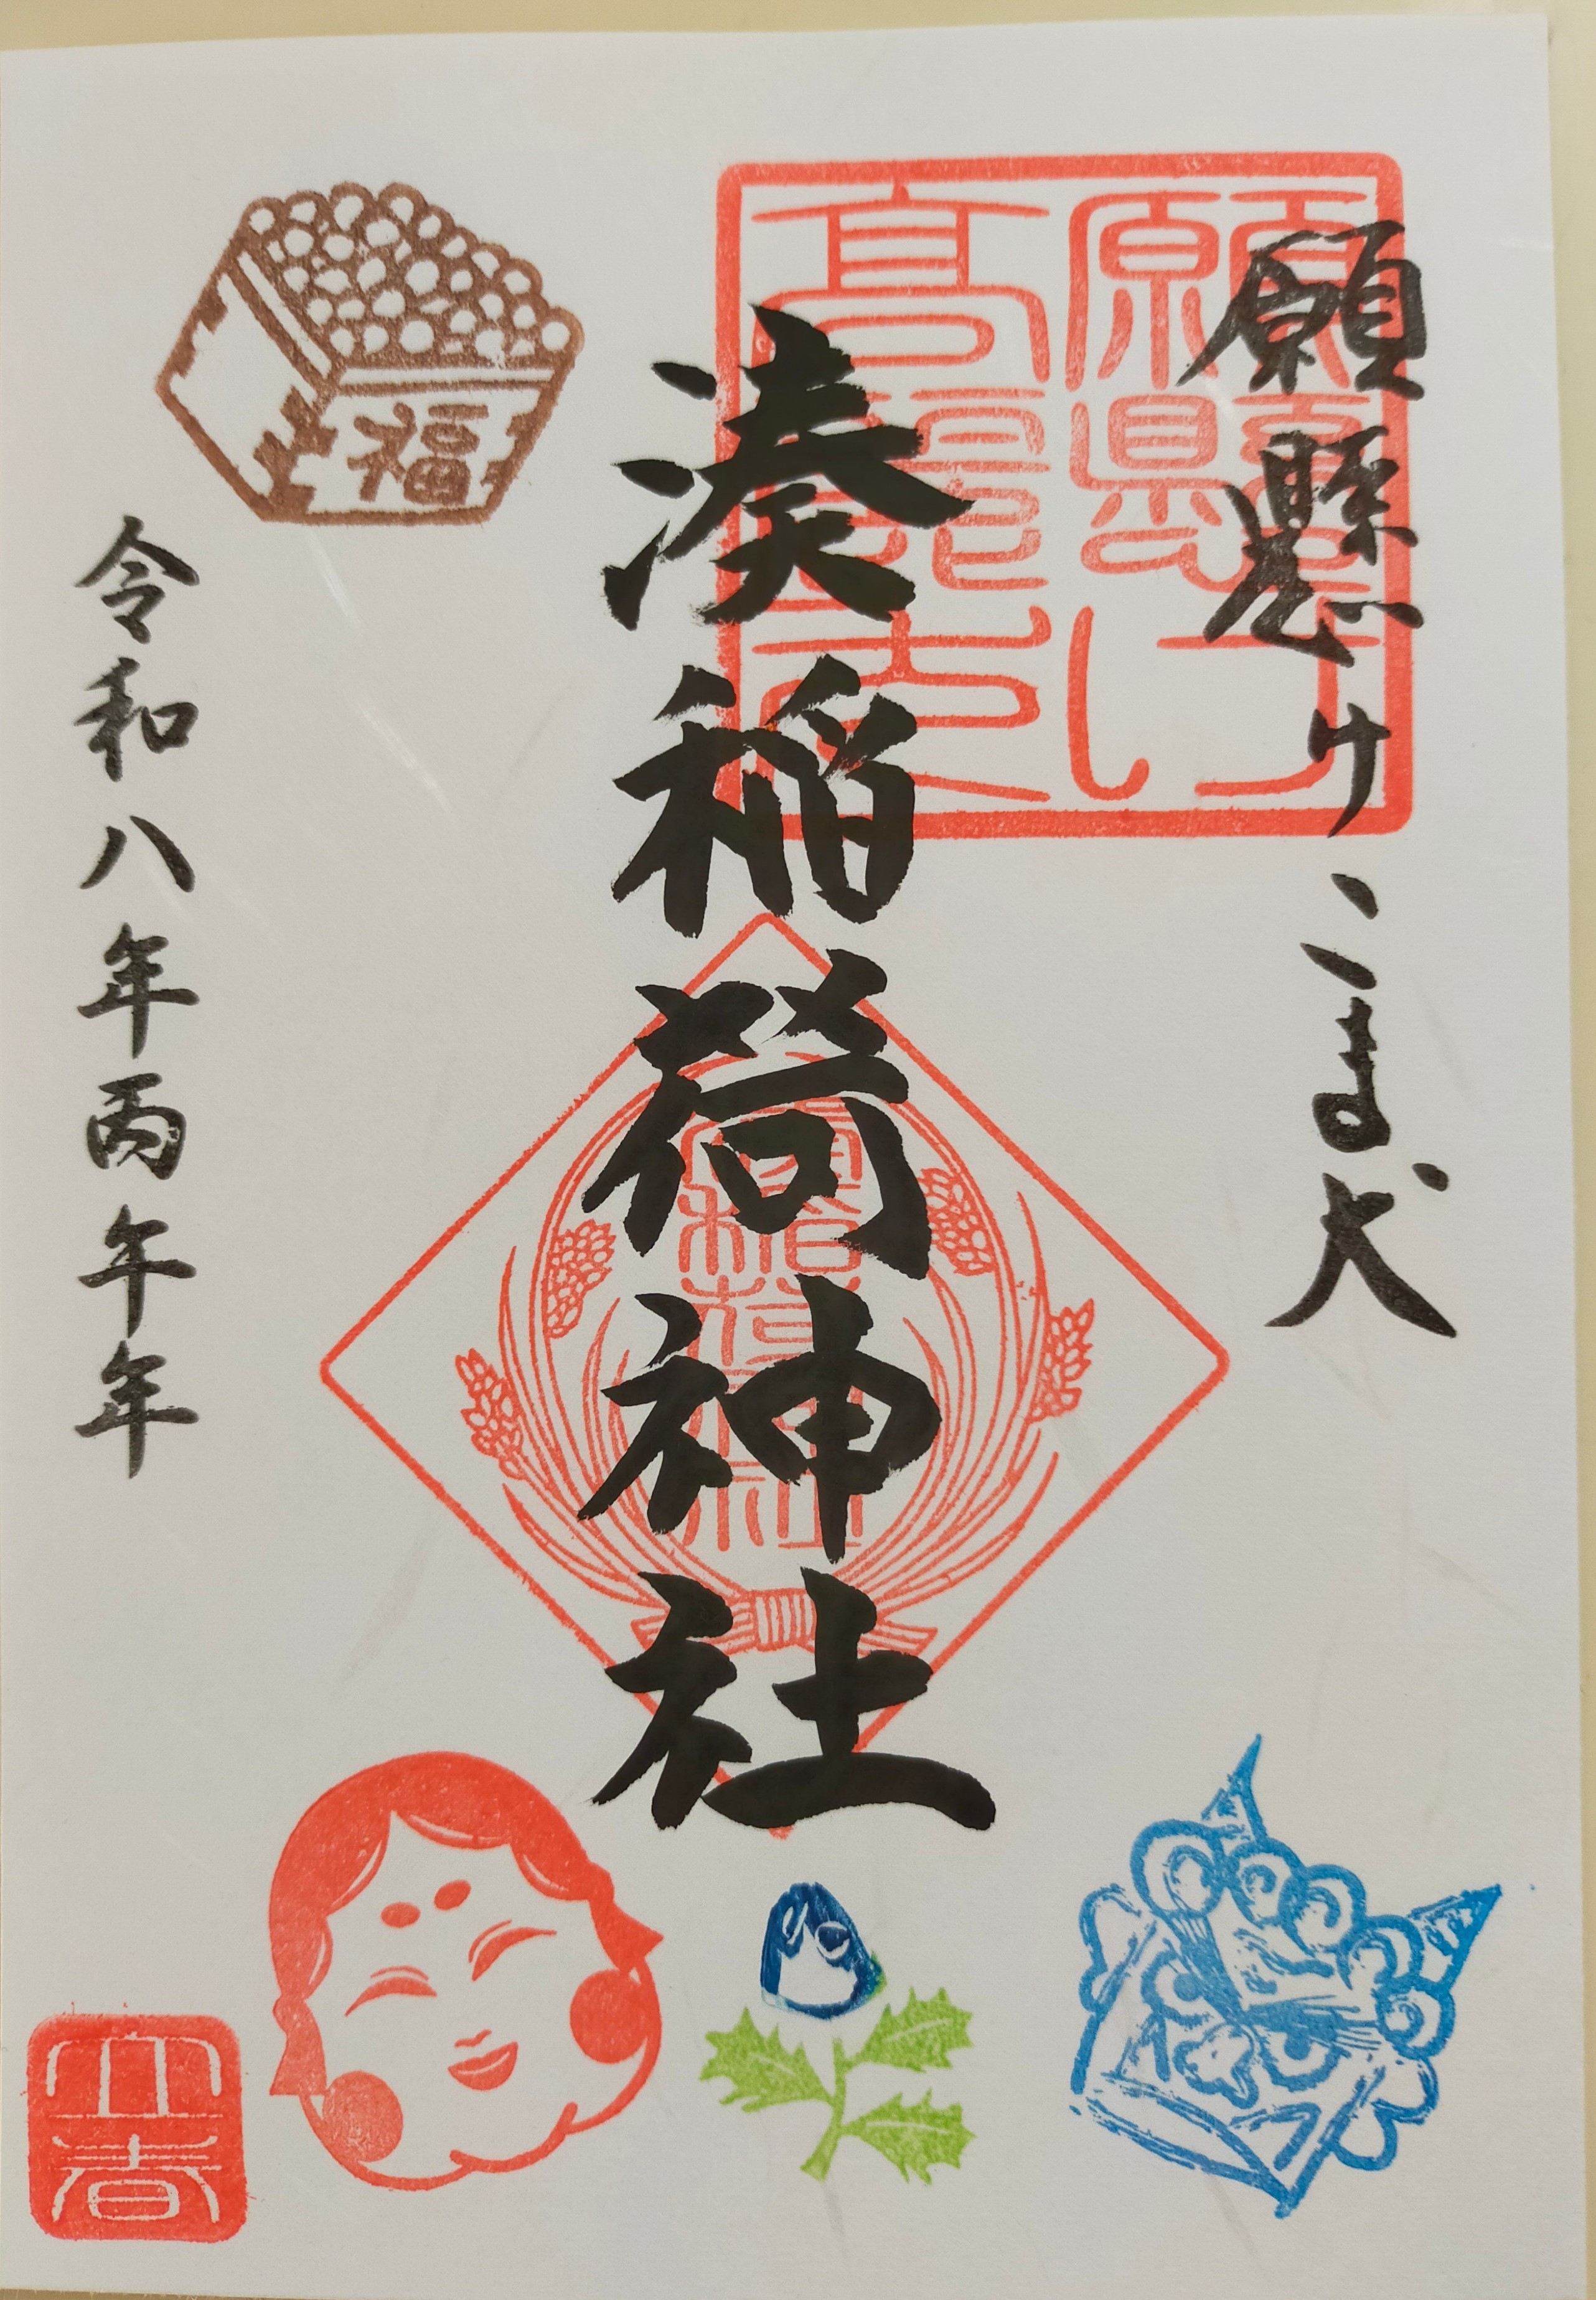 願懸けこま犬
湊稲荷神社
令和八年丙午年
福
願懸け
高麗犬
稲荷
立春